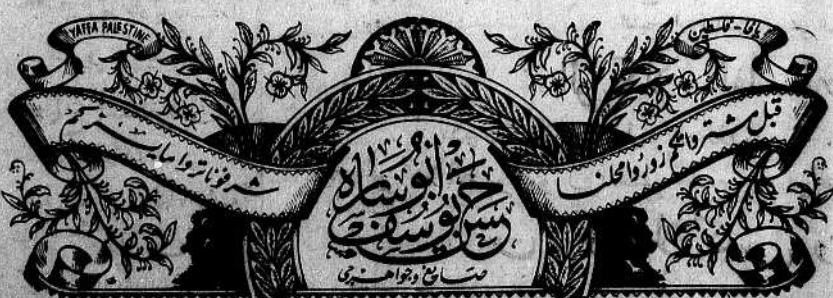 YAFFA PALESTINE
يافا - فلسطين
قبل مشترواتكم زوروا محلنا
شرفونا تروا ما يسركم
حسن يوسف
أبو ساره
صايغ وجواهرى